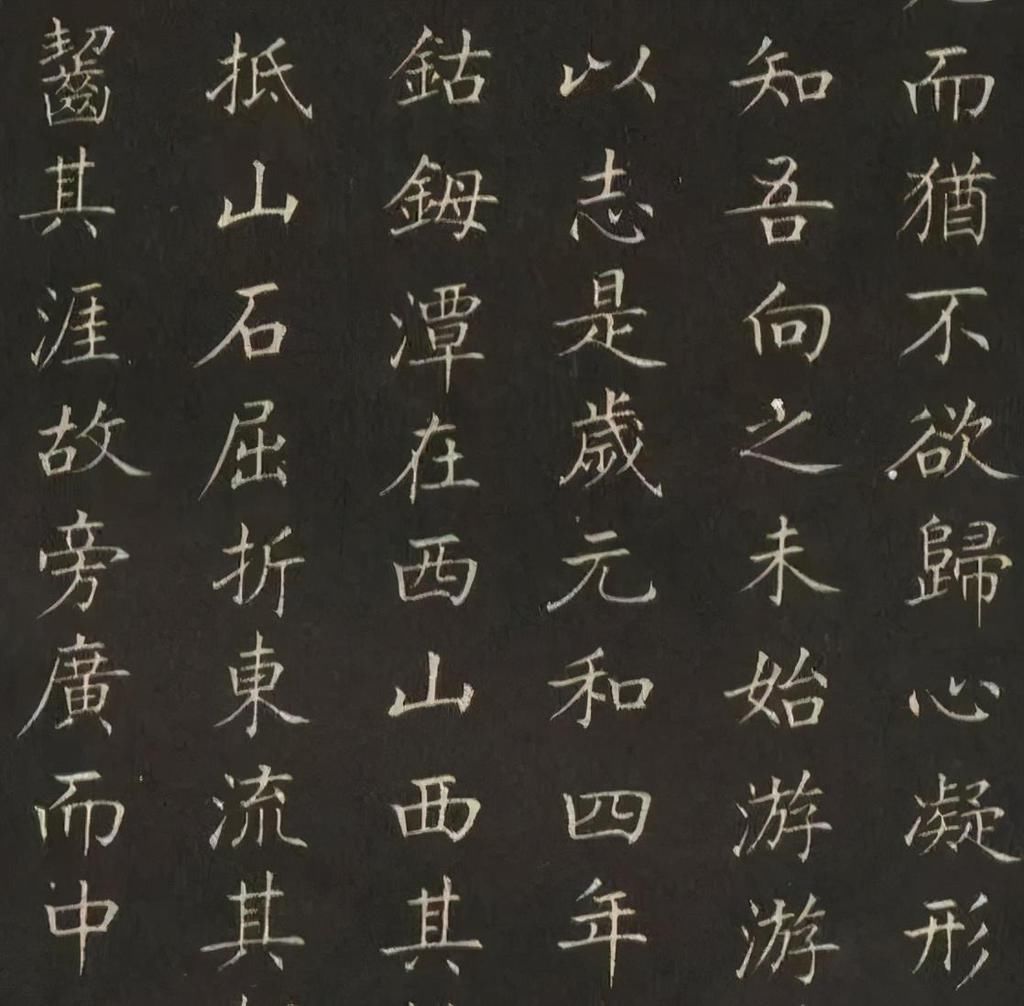 而猶不欲歸心凝形
知吾向之未始游游
以志是歲元和四年
鈷鉧潭在西山西其
抵山石屈折東流其
齧其涯故旁廣而中